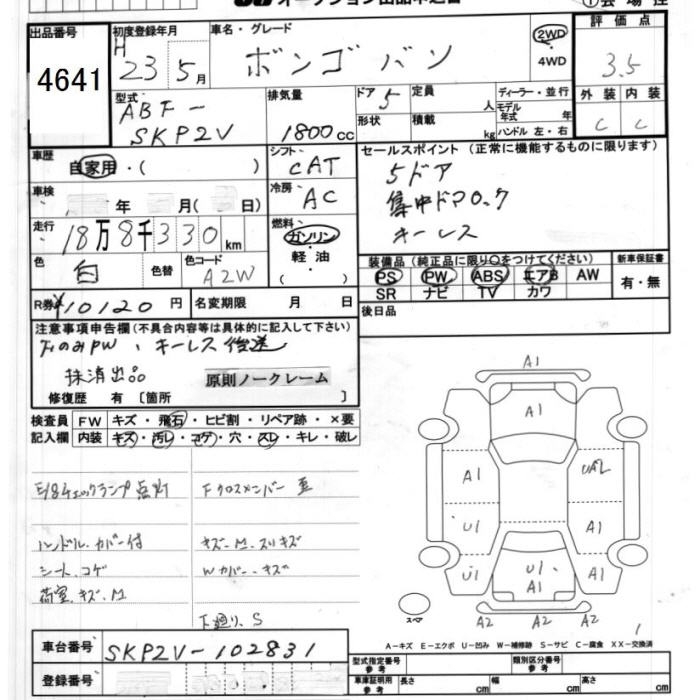 出品番号
4641
初度登録年月
H 23 5月
車名・グレード
ボンゴ バン
2WD
・4WD
評価点
3.5
外装 内装
C C
型式
ABF-
SKP2V
排気量
1800cc
ドア 5
定員 人
形状
積載 kg
ディーラー・並行
モデル年式 年
ハンドル 左・右
車歴
自家用・( )
シフト
CAT
車検
年 月( 日)
冷房
AC
セールスポイント(正常に機能するものに限ります)
5ドア
集中ドアロック
キーレス
走行
18万8千330km
燃料
ガソリン
・
軽油
( )
色
白
色替
色コード
A2W
装備品(純正品に限り○をつけてください)
PS PW ABS エアB AW
SR ナビ TV カワ
新車保証書
有・無
R券 ¥10120円
名変期限 月 日
後日品
注意事項申告欄(不具合内容等は具体的に記入して下さい)
のみPW、キーレス後送
抹消出品
原則ノークレーム
修復歴 有〔箇所 〕
検査員記入欄
FW キズ・飛石・ヒビ割・リペア跡・×要
内装 キズ・汚レ・コゲ・穴・スレ・キレ・破レ
E/gチェックランプ点灯
Fクロスメンバー
ハンドル・カバー付
キズ-M、スリキズ
シート、コゲ
Wカバー・キズ
荷室、キズ、M
下廻り、S
A1
A1
A1
UA2
U1
A1
U1
U1
A1
A1
A2 A2 A2
スペア
1
A-キズ E-エクボ U-凹み W-補修跡 S-サビ C-腐食 XX-交換済
車台番号
SKP2V-102831
登録番号
型式指定番号
参考
類別区分番号
参考
車庫証明用
参考
長さ cm
幅 cm
高さ cm